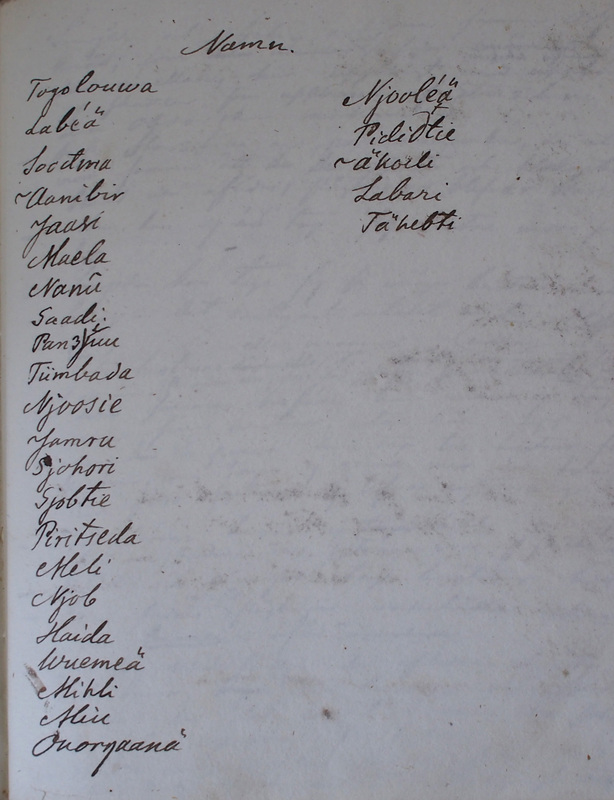 Namen.
Togolouwa
Labéä
Soctma
Aanibir
Jaasi
Maela
Nanū
Saadi.
Tümbada
Njoosie
Jamru
Sjohori
Sjobtie
Piritseda
Meli
Njob
Haida
Wuemeä
Mihli
Miu
Onorgaanä
Njooléä
äkoeli
Labari
Tähebti